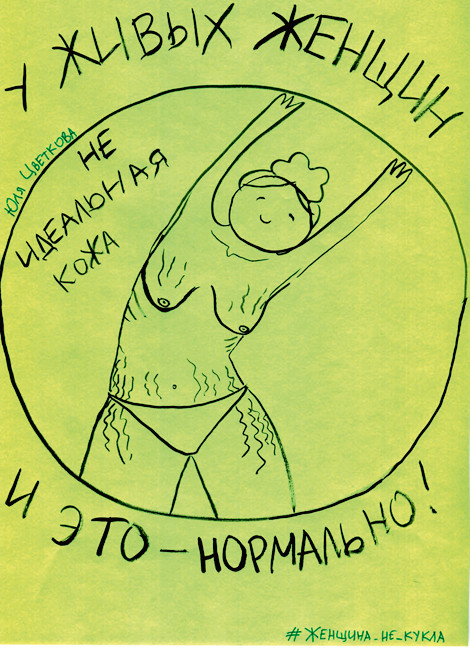 У ЖИВЫХ ЖЕНЩИН
НЕ
ИДЕАЛЬНАЯ
КОЖА
ЮЛЯ ЦВЕТКОВА
И ЭТО – НОРМАЛЬНО!
#ЖЕНЩИНА_НЕ_КУКЛА